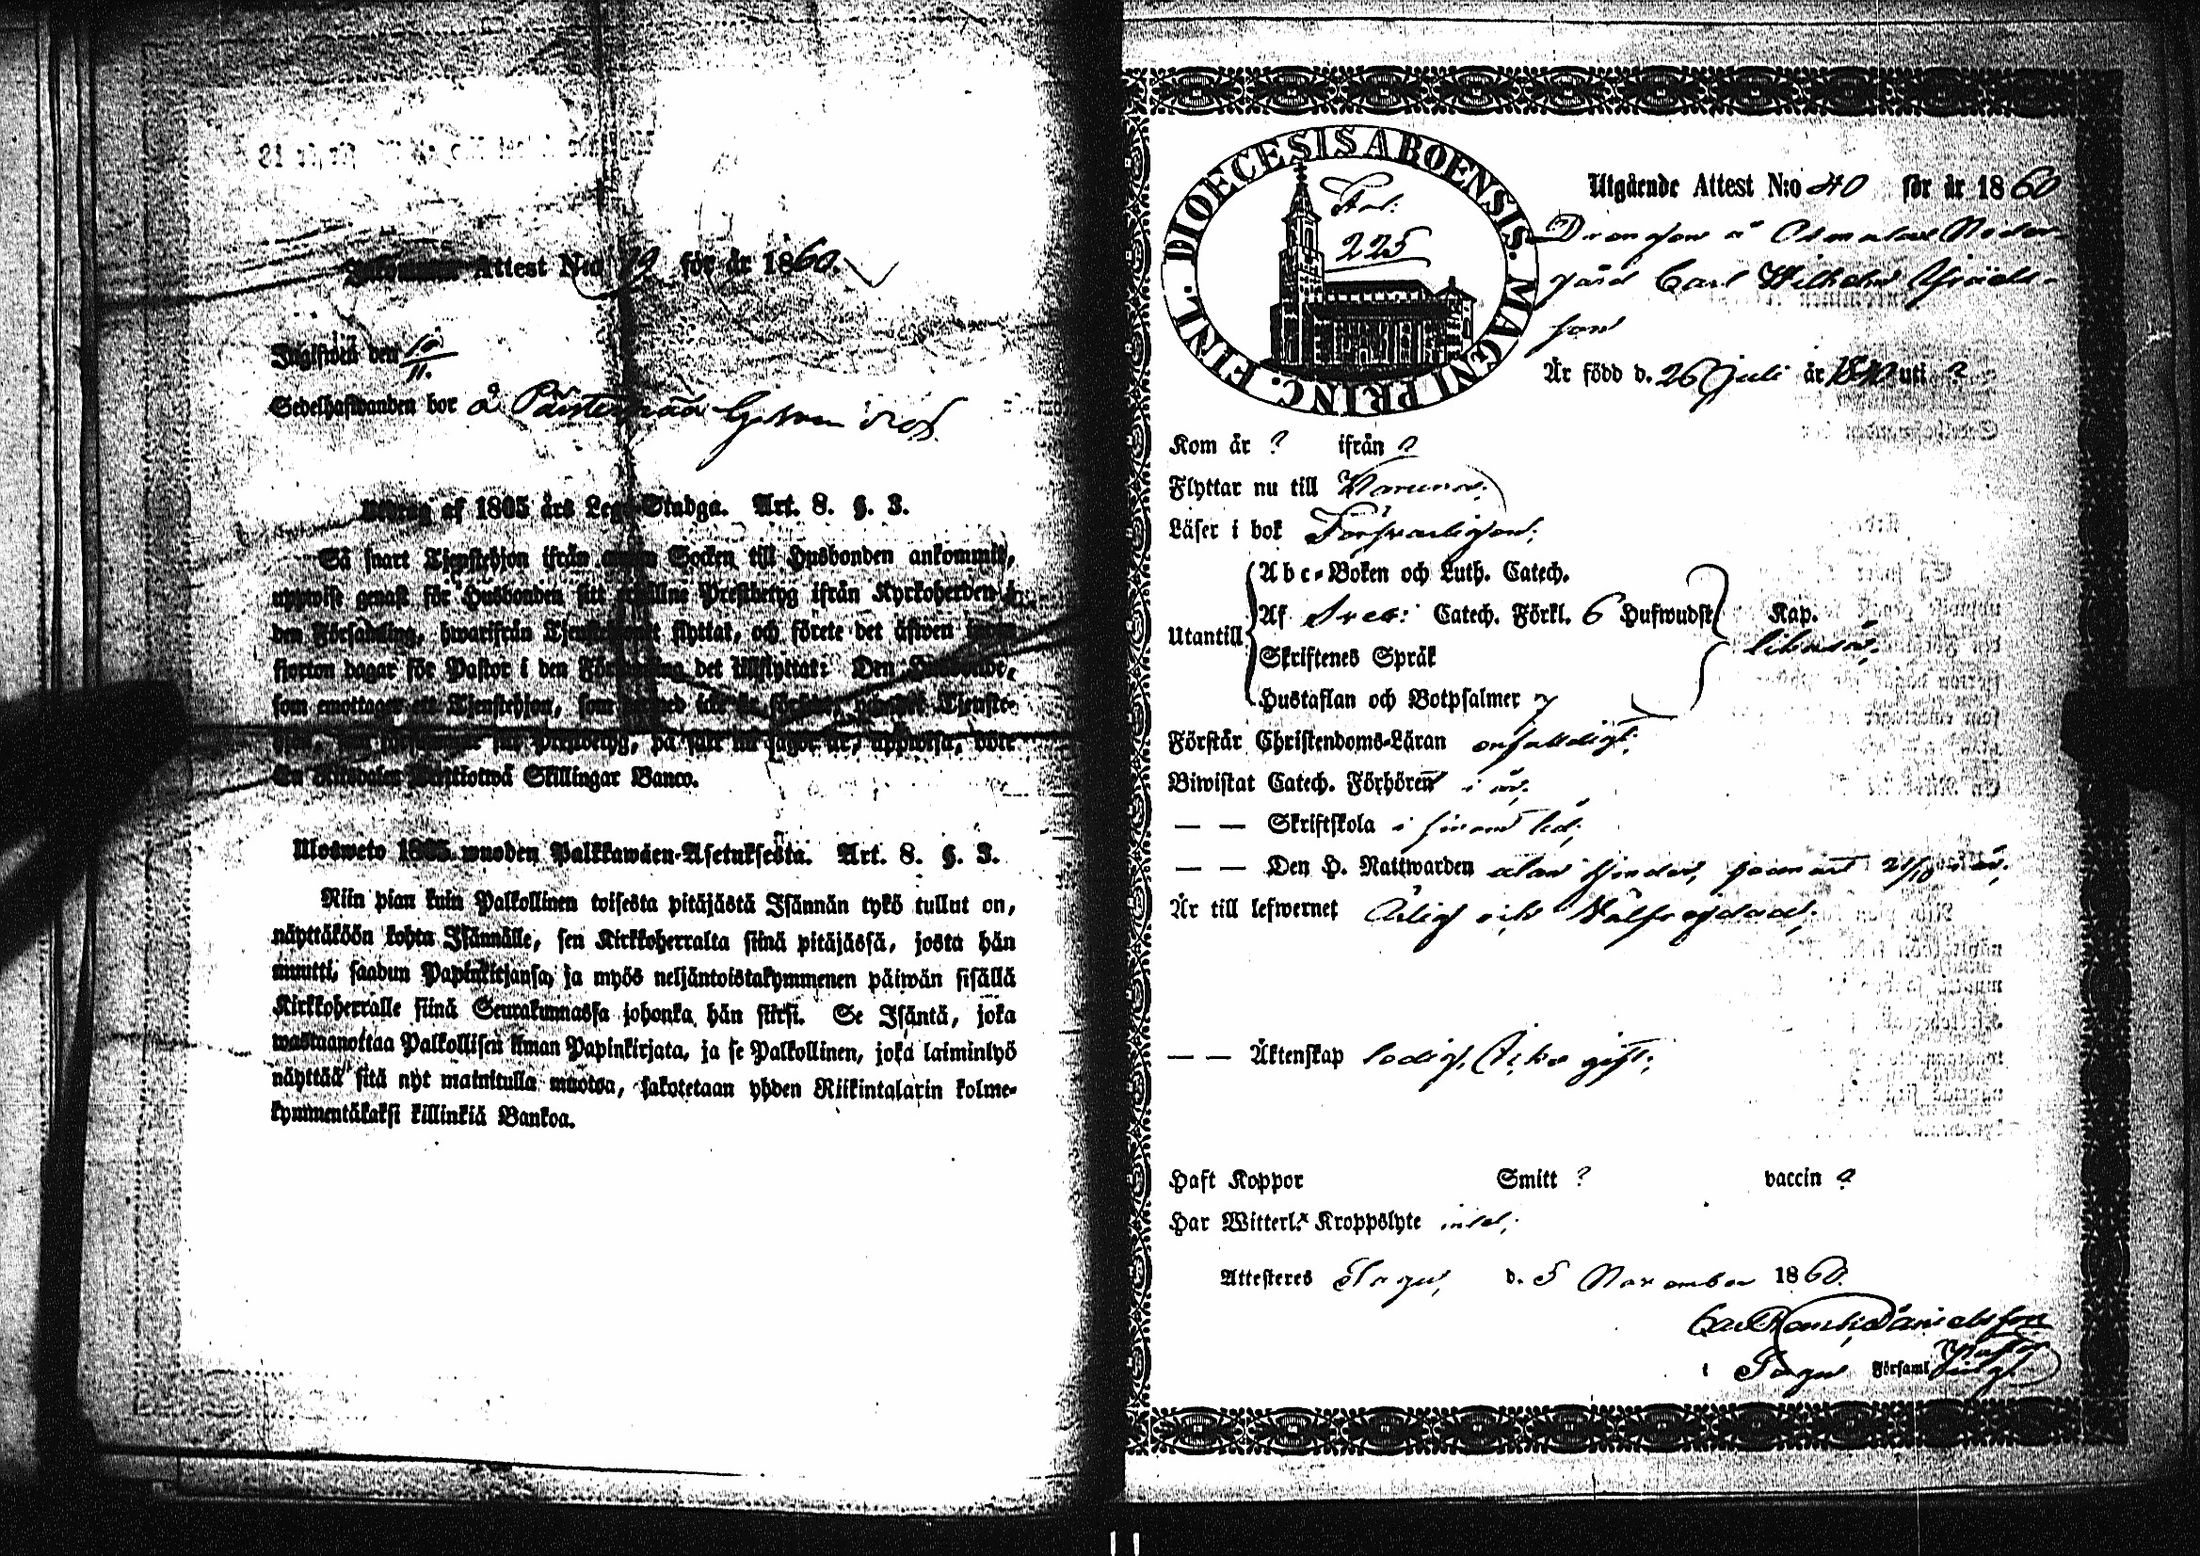 Attest N:o 19 för år 1860.
Inglifwen den 10/11.
Sedelhafwanden bor å
Utdrag af 1805 års Lego-Stadga. Art. 8. §. 3.
Så snart Tjenstehjon ifrån annan Socken till Husbonden ankommit,
uppwise genast för Husbonden sitt erhållne Prestbetyg ifrån Kyrkoherden i
den Församling, hwarifrån Tjenstehjonet flyttat, och förete det äfwen inom
fjorton dagar för Pastor i den Församling det tillflyttat: Den Husbonde,
som emottager ett Tjenstehjon, som
Prestbetyg, på sätt nu sagdt är, uppwisa, böte
En Riksdaler trettiotwå Skillingar Banco.
Ulosweto 1805 wuoden Palkkawäen-Asetuksesta. Art. 8. §. 3.
Niin pian kuin Palkollinen toisesta pitäjästä Isännän tykö tullut on,
näyttäköön kohta Isännälle, sen Kirkkoherralta siinä pitäjässä, josta hän
muutti, saadun Papinkirjansa, ja myös neljäntoistakymmenen päiwän sisällä
Kirkkoherralle siinä Seurakunnassa johonka hän siirsi. Se Isäntä, joka
wastaanottaa Palkollisen ilman Papinkirjata, ja se Palkollinen, joka laiminlyö
näyttää sitä nyt mainitulla muotoa, sakotetaan yhden Riikintalarin kolme-
kymmentäkaksi killinkiä Bankoa.
DIOECESIS ABOENSIS. MAGNI PRINC. FINL.
Fol:
225
Utgående Attest N:o 40 för år 1860
Drengen å Neder-
gård Carl Wilhelm
son
Är född d. 26 Juli år 1840 uti ?
Kom år ? ifrån ?
Flyttar nu till
Läser i bok Försvarligen;
Utantill
Abc-Boken och Luth. Catech.
Af Sveb: Catech. Förkl. 6 Hufwudst. Kap.
Skriftenes Språk
Hustaflan och Botpsalmer
Förstår Christendoms-Läran enfaldigt;
Biwistat Catech. Förhören i år;
— — Skriftskola i sinom tid;
— — Den H. Nattwarden utan hinder, senast 21/10 i år;
Är till lefwernet Ärlig och Välfrejdad;
— — Äktenskap ledig, icke gift;
Haft Koppor Smitt ? vaccin ?
Har Witterl. Kroppslyte intet;
Attesteres d. 5 November 1860.
Danielsson
i Församl.